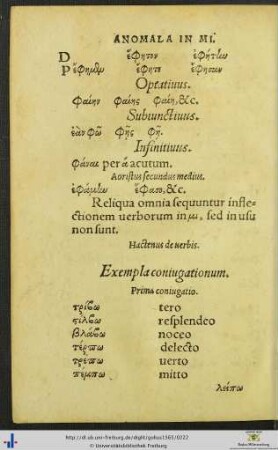 ANOMALA IN MI.
D ἔφητον ἐφήτην
P ἔφημεν ἔφητε ἔφησαν
Optatiuus.
φαίην φαίης φαίη, &c.
Subiunctiuus.
ἐὰν φῶ φῇς φῇ.
Infinitiuus.
φάναι per á acutum.
Aoristus secundus medius.
ἐφάμην ἔφασο, &c.
Reliqua omnia sequuntur infle-
ctionem uerborum in μι, sed in usu
non sunt.
Hactenus de uerbis.
Exempla coniugationum.
Prima coniugatio.
τρίβω tero
στίλβω resplendeo
βλάβω noceo
τέρπω delecto
τρέπω uerto
πέμπω mitto
λείπω
http://dl.ub.uni-freiburg.de/diglit/gaius1503/0222
© Universitätsbibliothek Freiburg